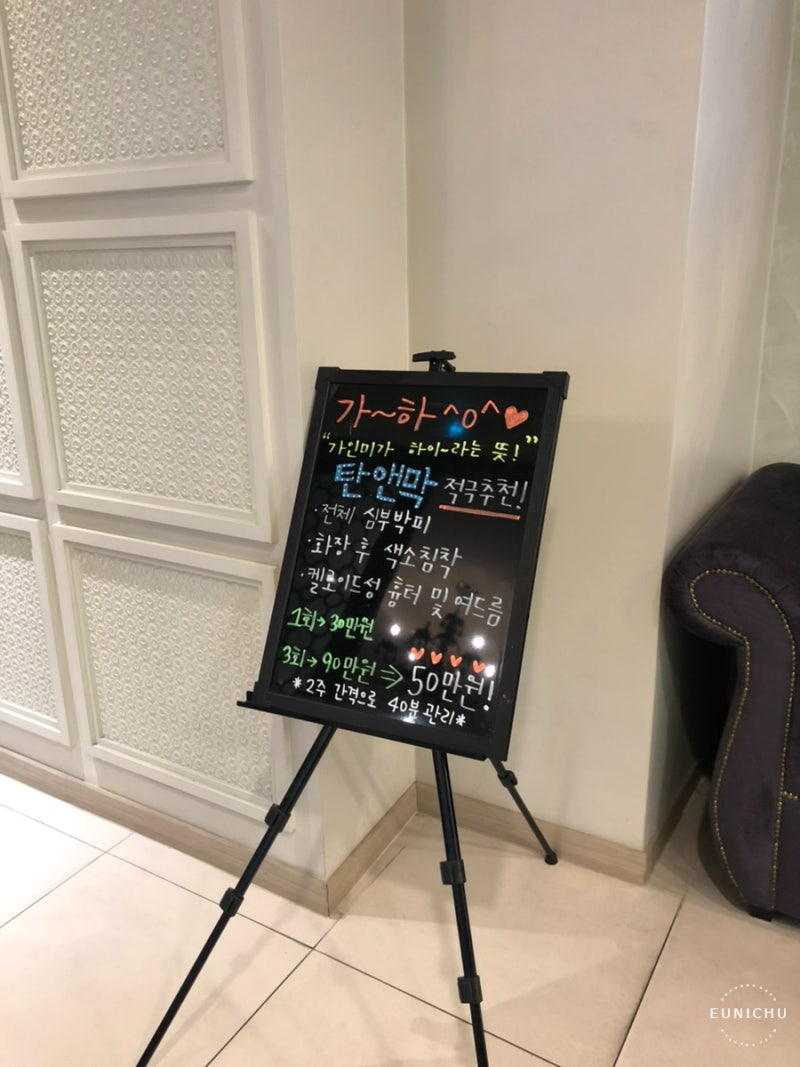 가~하 ^o^♥
"가인미가 하이~라는 뜻!"
탄앤막 적극추천!
·전체 심부박피
·화장 후 색소침착
·켈로이드성 흉터 및 여드름
1회→30만원
3회→90만원⇒50만원!
*2주 간격으로 40분 관리*
EUNICHU